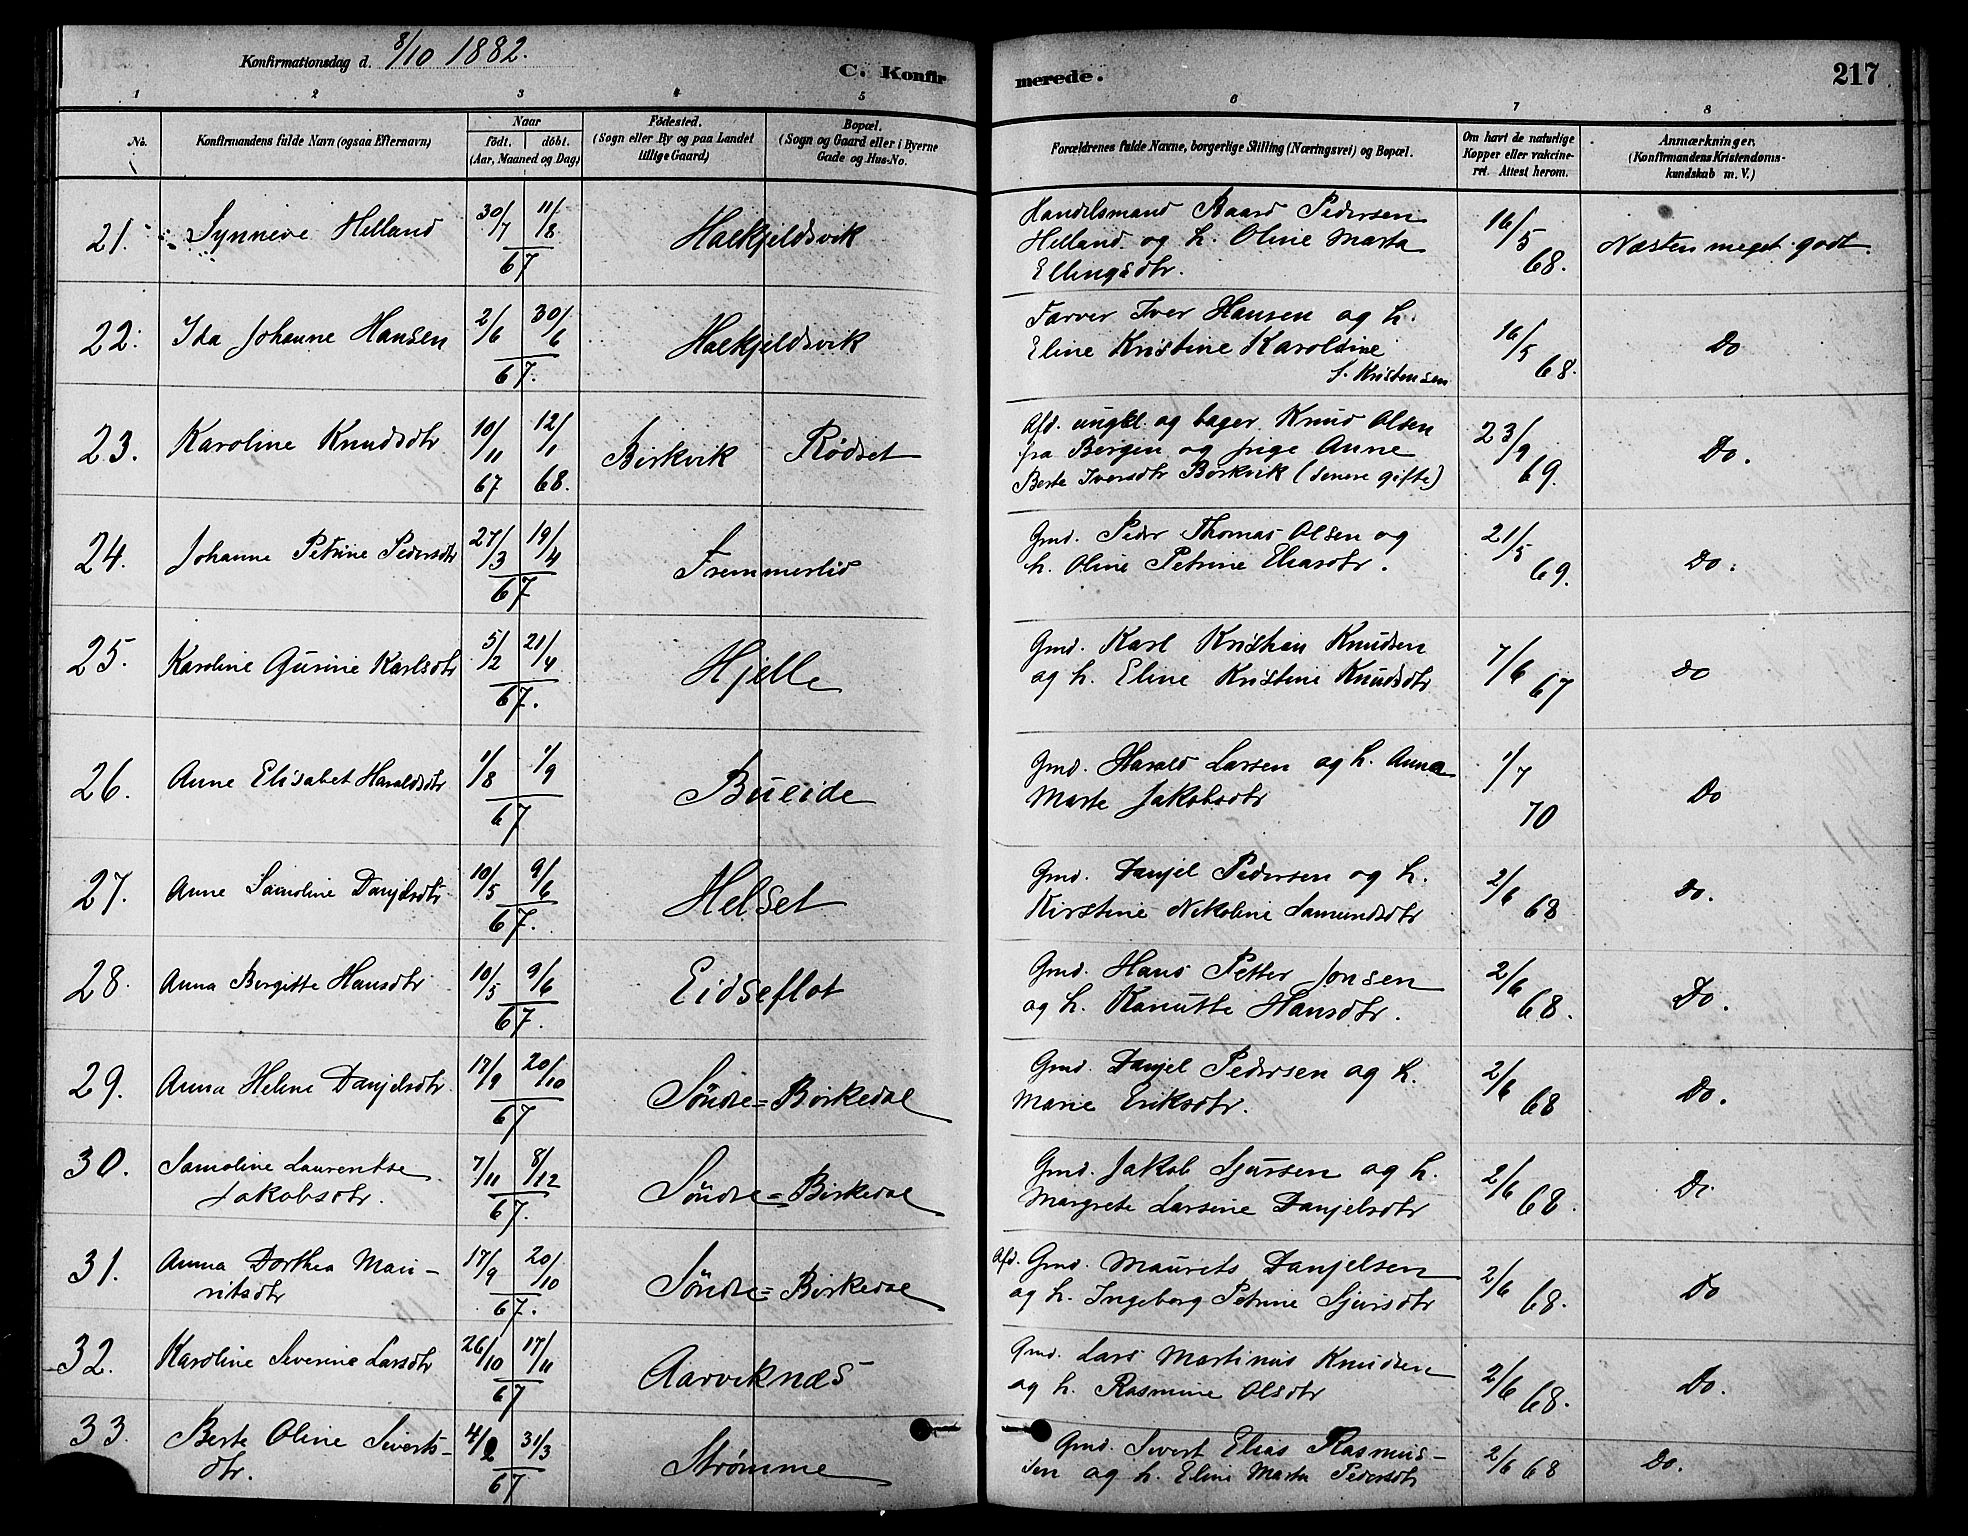 Konfirmationsdag d. 8/10 1882.
C. Konfirmerede.
217
1 2 3 4 5 6 7 8
No.
Konfirmandens fulde Navn (ogsaa Efternavn)
Naar
født. døbt.
(Aar, Maaned og Dag)
Fødested.
(Sogn eller By og paa Landet
tillige Gaard)
Bopæl.
(Sogn og Gaard eller i Byerne
Gade og Hus-No.
Forældrenes fulde Navne, borgerlige Stilling (Næringsvei) og Bopæl.
Om havt de naturlige
Kopper eller vakcine-
ret. Attest herom.
Anmærkninger.
(Konfirmandens Kristendoms-
kundskab m. V.)
21. Synneve Helland 30/7 11/8 67 Haekjeldsvik
Handelsmand Baard Pedersen
Helland og h. Oline Marta
Ellingsdtr.
16/5 68. Næsten meget godt.
22. Ida Johanne Hansen 2/6 30/6 67. Haekjeldsvik
Farver Iver Hansen og h.
Eline Kristine Karoline
f. Kristensen
16/5 68. Do
23. Karoline Knudsdtr 10/11 67 12/1 68. Birkvik Rødset
Afd. ungkl. og bager Knud Olsen
fra Bergen og pige Anne
Berte Iversdtr Borkvik (senere gifte)
23/9 69. Do.
24. Johanne Petrine Pedersdtr 27/3 19/4 67 Fremmerlid
Gmd. Peder Thomas Olsen og
h. Oline Petrine Eliasdtr.
21/5 69. Do.
25. Karoline Gurine Karlsdtr 5/2 21/4 67. Hjelle
Gmd. Karl Kristian Knudsen
og h. Eline Kristine Knudsdtr
7/6 67 Do
26. Anne Elisabet Haraldsdtr 1/8 1/9 67 Bueide
Gmd. Harald Larsen og h. Anna
Marte Jakobsdtr
1/7 70 Do
27. Anne Samoline Danjelsdtr 10/5 9/6 67. Helset
Gmd. Danjel Pedersen og h.
Kirstine Nikoline Samundsdtr
2/6 68 Do.
28. Anna Bergitte Hansdtr 10/5 9/6 67. Eidseflot
Gmd. Hans Petter Jonsen
og h. Kanutte Hansdtr.
2/6 68. Do.
29. Anna Heline Danjelsdtr. 17/9 20/10 67 Søndre=Birkedal
Gmd. Danjel Pedersen og h.
Marie Eriksdtr.
2/6 68 Do.
30. Samoline Laurentse
Jakobsdtr. 7/11 8/12 67. Søndre=Birkedal
Gmd. Jakob Sjursen og h.
Margrete Larsine Danjelsdtr
2/6 68. Do
31. Anna Dorthea Mau-
ritsdtr 17/9 20/10 67. Søndre=Birkedal
Afd. Gmd. Maurits Danjelsen
og h. Ingeborg Petrine Sjursdtr
2/6 68. Do
32. Karoline Severine Larsdtr 26/10 17/11 67 Aarviknæs
Gmd. Lars Martinus Knudsen
og h. Rasmine Olsdtr
2/6 68. Do.
33. Berte Oline Siverts-
dtr. 4/2 31/3 67 Strømme
Gmd. Sivert Elias Rasmus-
sen og h. Eline Marta Pedersdtr
2/6 68 Do.